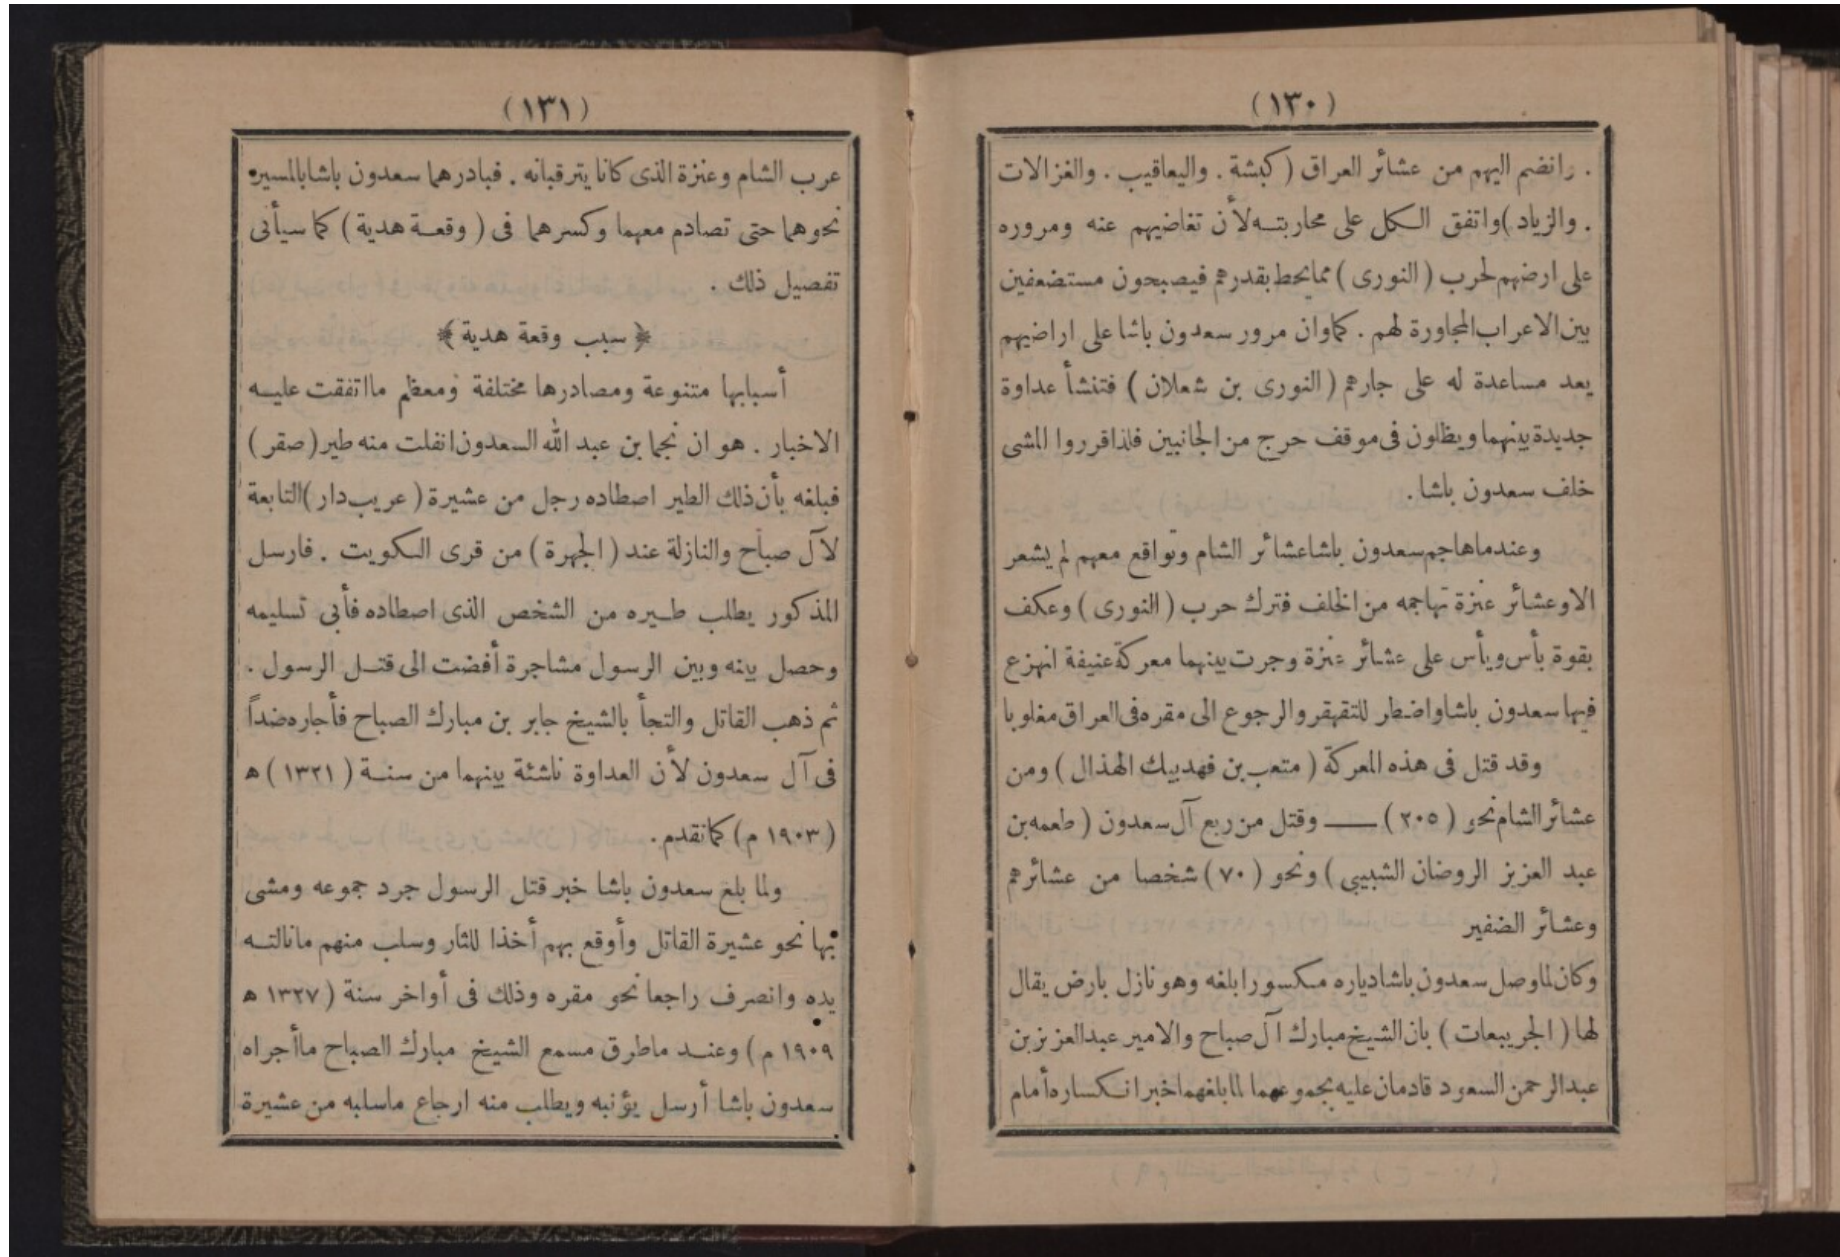 (١٣٠)
. رانضم اليهم من عشائر العراق ( كبشة . واليعاقيب . والغزالات
. والزياد ) واتفق الكل على محاربته لأن تغاضيهم عنه ومروره
على ارضهم لحرب ( النورى ) مما يحط بقدرهم فيصبحون مستضعفين
بين الاعراب المجاورة لهم . كما وان مرور سعدون باشا على اراضيهم
يعد مساعدة له على جارهم ( النورى بن شعلان ) فتنشأ عداوة
جديدة بينهما ويظلون فى موقف حرج من الجانبين فلذا قرروا المشى
خلف سعدون باشا .
وعندما هاجم سعدون باشا عشائر الشام وتواقع معهم لم يشعر
الا وعشائر عنزة تهاجمه من الخلف فترك حرب ( النورى ) وعكف
بقوة بأس ويأس على عشائر عنزة وجرت بينهما معركة عنيفة انهزع
فيها سعدون باشا واضطر للتقهقر والرجوع الى مقره فى العراق مغلوبا
وقد قتل فى هذه المعركة ( متعب بن فهد بيك الهذال ) ومن
عشائر الشام نحو ( ٢٠٥ ) —— وقتل من ربع آل سعدون ( طعمه بن
عبد العزيز الروضان الشبيبى ) ونحو ( ٧٠ ) شخصا من عشائرهم
وعشائر الضفير
وكان لما وصل سعدون باشا دياره مكسورا بلغه وهو نازل بارض يقال
لها ( الجريبعات ) بان الشيخ مبارك آل صباح والامير عبد العزيز بن
عبد الرحمن السعود قادمان عليه بجموعهما لما بلغهما خبر انكساره أمام
(١٣١)
عرب الشام وعنزة الذى كانا يترقبانه . فبادرهما سعدون باشا بالمسيره
نحوهما حتى تصادم معهما وكسرهما فى ( وقعة هدية ) كما سيأتى
تفصيل ذلك .
﴿ سبب وقعة هدية ﴾
أسبابها متنوعة ومصادرها مختلفة ومعظم ما اتفقت عليه
الاخبار . هو ان نجما بن عبد الله السعدون انفلت منه طير ( صقر )
فبلغه بأن ذلك الطير اصطاده رجل من عشيرة ( عريب دار ) التابعة
لآل صباح والنازلة عند ( الجهرة ) من قرى الكويت . فارسل
المذكور يطلب طيره من الشخص الذى اصطاده فأبى تسليمه
وحصل بينه وبين الرسول مشاجرة أفضت الى قتل الرسول .
ثم ذهب القاتل والتجأ بالشيخ جابر بن مبارك الصباح فأجاره ضداً
فى آل سعدون لأن العداوة ناشئة بينهما من سنة ( ١٣٢١ ) ه
( ١٩٠٣ م ) كما تقدم .
ولما بلغ سعدون باشا خبر قتل الرسول جرد جموعه ومشى
بها نحو عشيرة القاتل وأوقع بهم أخذا للثار وسلب منهم ما نالته
يده وانصرف راجعا نحو مقره وذلك فى أواخر سنة ( ١٣٢٧ ه
١٩٠٩ م ) وعند ما طرق مسمع الشيخ مبارك الصباح ما أجراه
سعدون باشا أرسل يؤنبه ويطلب منه ارجاع ما سلبه من عشيرة